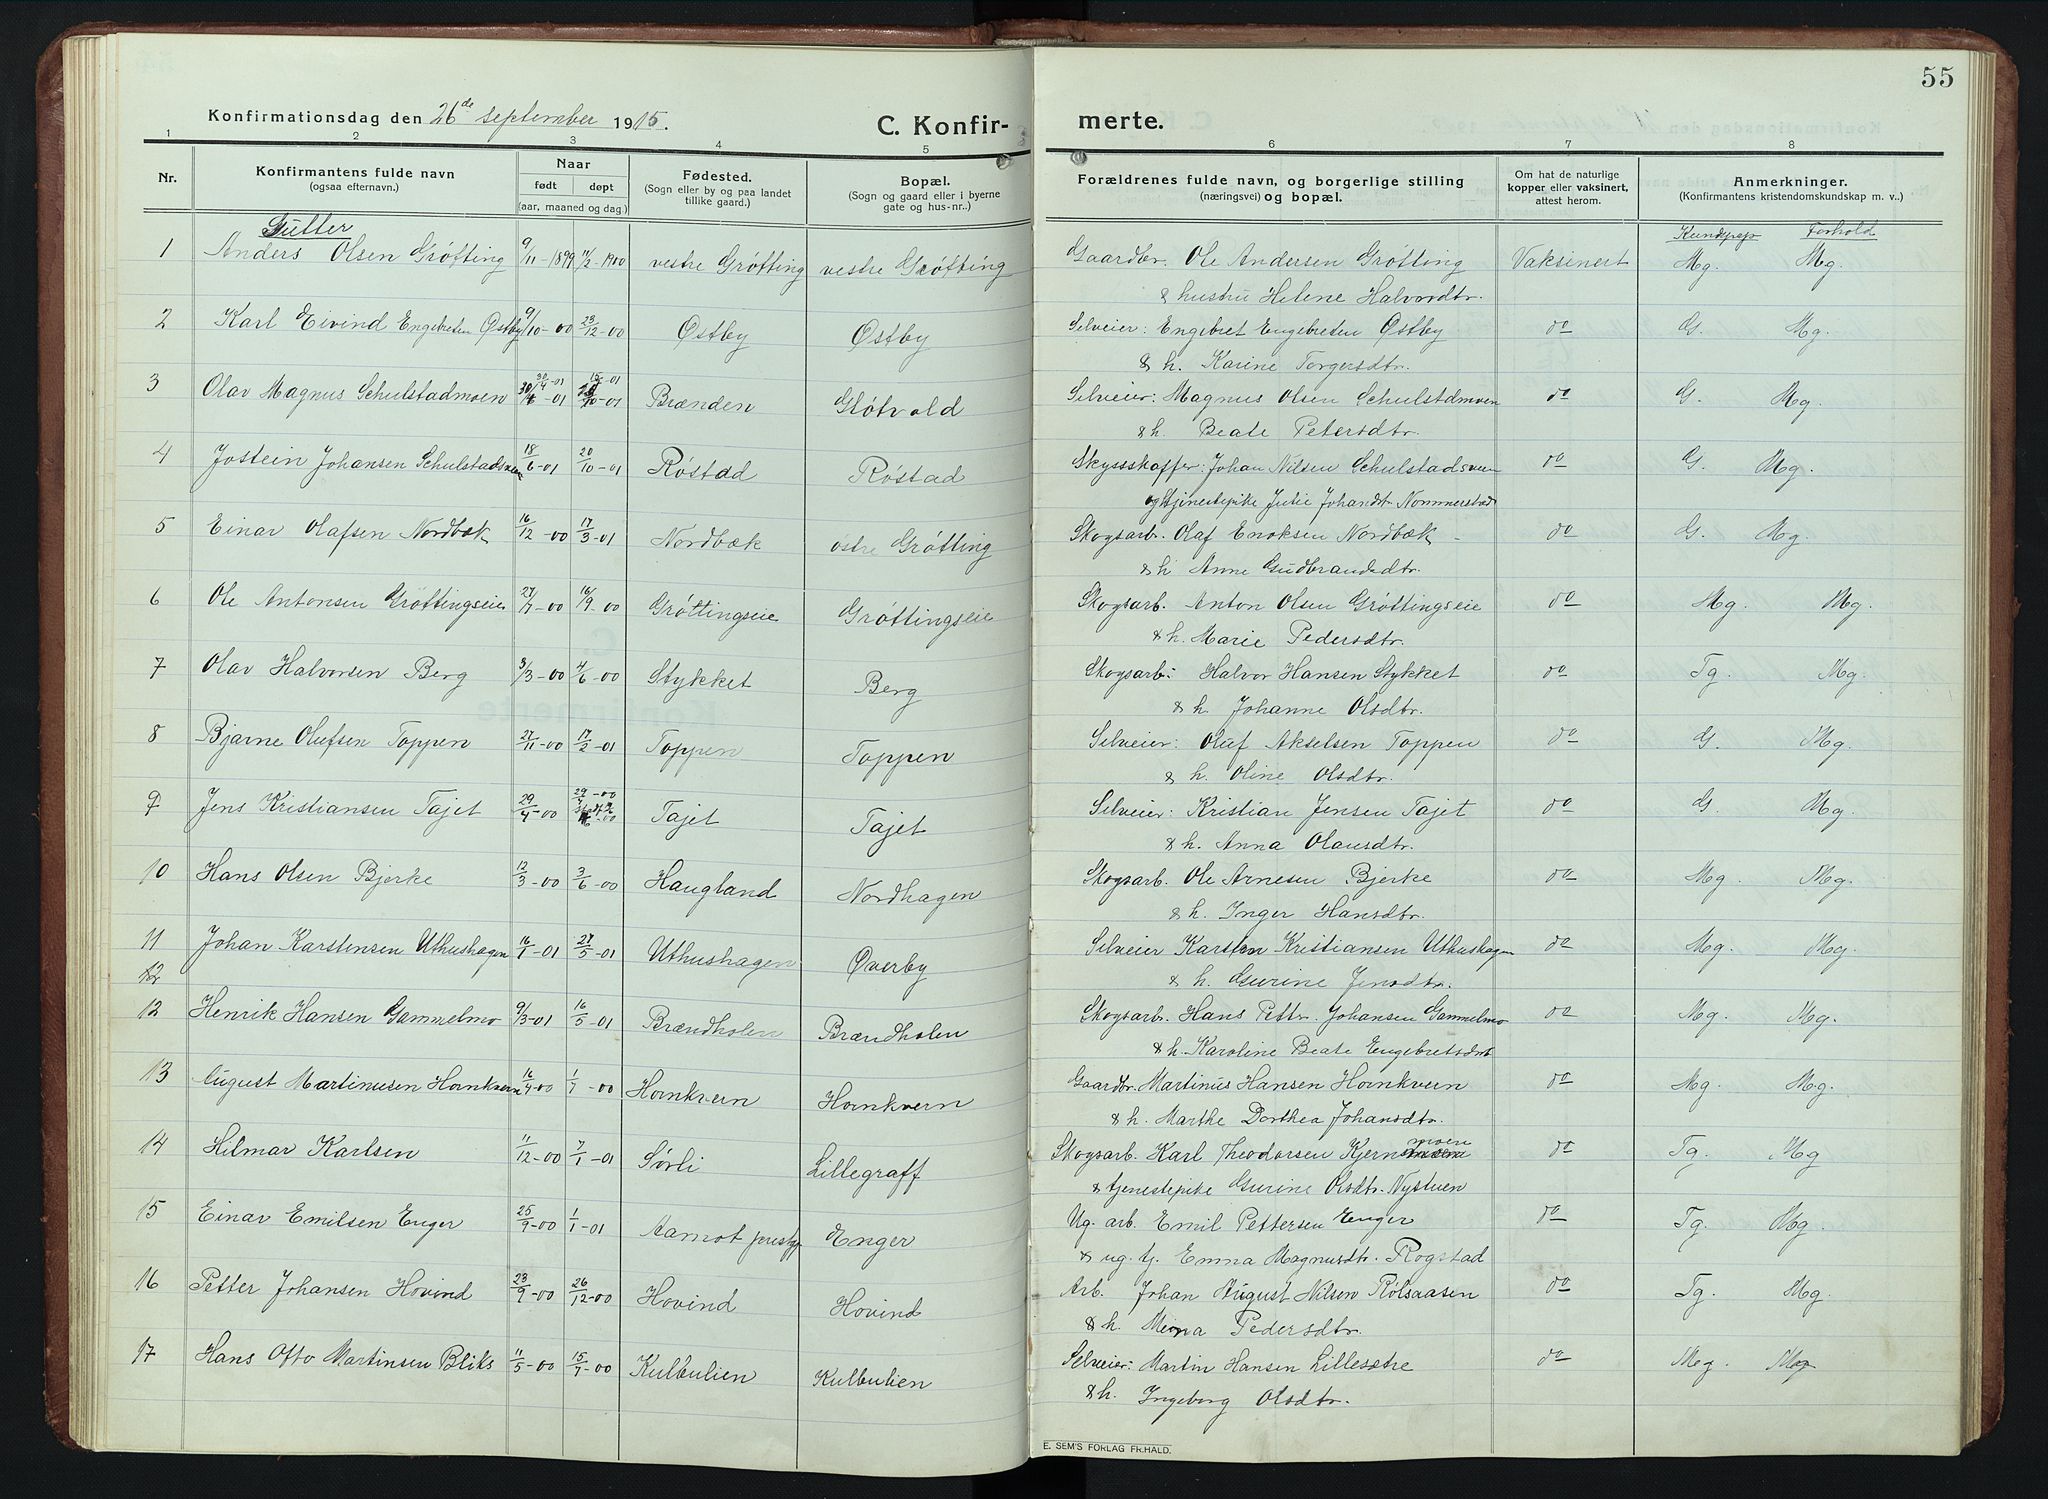 55
Konfirmationsdag den 26de september 1915.
C. Konfirmerte.
1 2 3 4 5 6 7 8
Nr.
Konfirmantens fulde navn
(ogsaa efternavn.)
Naar
født døpt
(aar, maaned og dag.)
Fødested.
(Sogn eller by og paa landet
tillike gaard.)
Bopæl.
(Sogn og gaard eller i byerne
gate og hus-nr..)
Forældrenes fulde navn, og borgerlige stilling
(næringsvei) og bopæl.
Om hat de naturlige
kopper eller vaksinert,
attest herom.
Anmerkninger.
(Konfirmantens kristendomskundskap m. v..)
Gutter
Kundskap Forhold
1 Anders Olsen Grøtting 9/11-1899 11/2-1900 vestre Grøtting vestre Grøtting Gaardbr. Ole Andersen Grøtting Vaksinert Mg. Mg.
& hustru Helene Halvordtr.
2 Karl Eivind Engebretsen Østby 9/10-00 23/12-00 Østby Østby Selveier: Engebret Engebretsen Østby do G. Mg.
& h. Karine Torgersdtr.
30/4-01 15-01
3 Olav Magnus Schulstadmoen 30/6-01 10-01 Brænden Gløtvold Selveier: Magnus Olsen Schulstdmoen do G. Mg.
& h. Beate Petersdtr.
4 Jostein Johansen Schulstadsveen 18/6-01 20/10-01 Røstad Røstad Skyssskaffer: Johan Nilsen Schulstadsveen do G. Mg.
og tjenestepike Julie Johandtr Nommerstad
5 Einar Olafsen Nordbæk 16/12-00 17/3-01 Nordbæk østre Grøtting Skogsarb. Olaf Enoksen Nordbæk - do G. Mg.
& h Anne Gudbrandsdtr.
6 Ole Antonsen Grøttingseie 27/7-00 16/9-00 Grøttingseie Grøttingseie Skogsarb. Anton Olsen Grøttingseie do Mg. Mg.
& h. Marie Pedersdtr.
7 Olav Halvorsen Berg 3/3-00 4/6-00 Stykket Berg Skogsarb: Halvor Hansen Stykket do Tg. Mg.
& h. Johanne Olsdtr.
8 Bjarne Olufsen Toppen 27/11-00 17/2-01 Toppen Toppen Selveier: Oluf Akselsen Toppen do G. Mg.
& h. Oline Olsdtr.
9 Jens Kristiansen Tajet 29/4-00 29/7-00 Tajet Tajet Selveier: Kristian Jensen Tajet do G. Mg.
& h. Anna Olausdtr.
10 Hans Olsen Bjerke 12/3-00 3/6-00 Haugland Nordhagen Skogsarb. Ole Arnesen Bjerke do Mg. Mg.
& h. Inger Hansdtr.
11 Johan Karstensen Uthushagen 16/1-01 27/5-01 Uthushagen Øverby Selveier Karsten Kristiansen Uthushagen do Mg. Mg.
12
& h. Gurine Jensdtr.
12 Henrik Hansen Gammelmo 9/3-01 16/5-01 Brændholen Brændholen Skogsarb. Hans Petter Johansen Gammelmo do Mg. Mg.
& h. Karoline Beate Engebretsdtr
13 August Martinusen Hornkvern 16/4-00 1/7-00 Hornkvern Hornkvern Gaardbr. Martinus Hansen Hornkvern do Mg. Mg.
& h. Marthe Dorthea Johansdtr.
14 Hilmar Karlsen 11/12-00 7/1-01 Sørli Lillegraff Skogsarb. Karl Theodorsen Kjernmoen do Tg. Mg
& tjenestepike Gurine Olsdtr. Nystuen
15 Einar Emilsen Enger 25/9-00 1/1-01 Aamot prestgj Enger Ug. arb. Emil Pettersen Enger do Tg. Mg.
& ug. tj. Emma Magnusdtr. Rogstad
16 Petter Johansen Hovind 23/9-00 26/12-00 Hovind Hovind Arb. Johan August Nilsen Rølsaasen do Tg. Mg.
& h. Mina Pedersdtr.
17 Hans Otto Martinsen Bliks 11/5-00 15/7-00 Kulbulien Kulbulien Selveier: Martin Hansen Lillesætre do Meg. Mg
& h. Ingeborg Olsdtr.
E. SEM'S FORLAG FR.HALD.